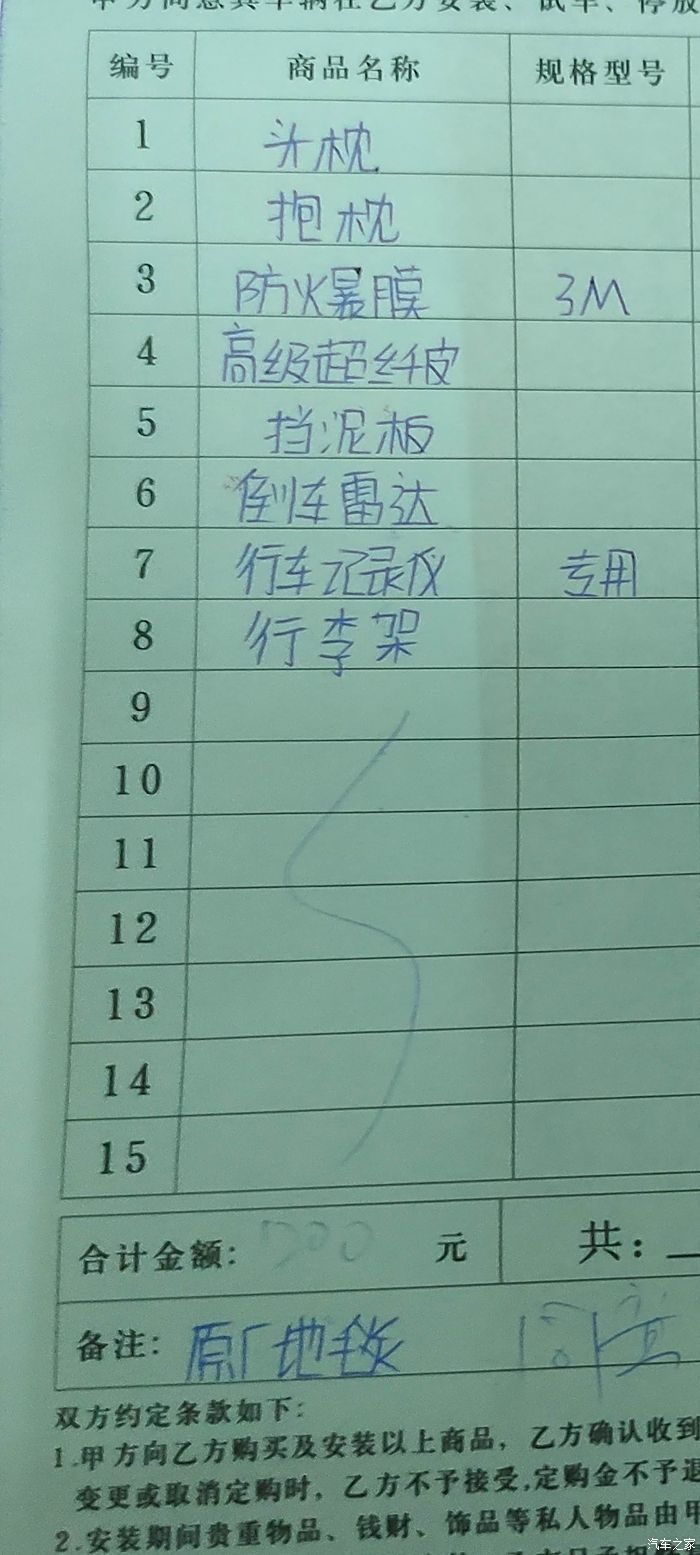 甲方同意其车辆在乙方安装、试车、停放
编号 商品名称 规格型号
1 头枕
2 抱枕
3 防火暴膜 3M
4 高级超纤皮
5 挡泥板
6 倒车雷达
7 行车记录仪 专用
8 行李架
9
10
11
12
13
14
15
合计金额: 700 元 共:
备注: 原厂地毯
双方约定条款如下:
1.甲方向乙方购买及安装以上商品，乙方确认收到
变更或取消定购时，乙方不予接受,定购金不予退
2.安装期间贵重物品、钱财、饰品等私人物品由甲
汽车之家